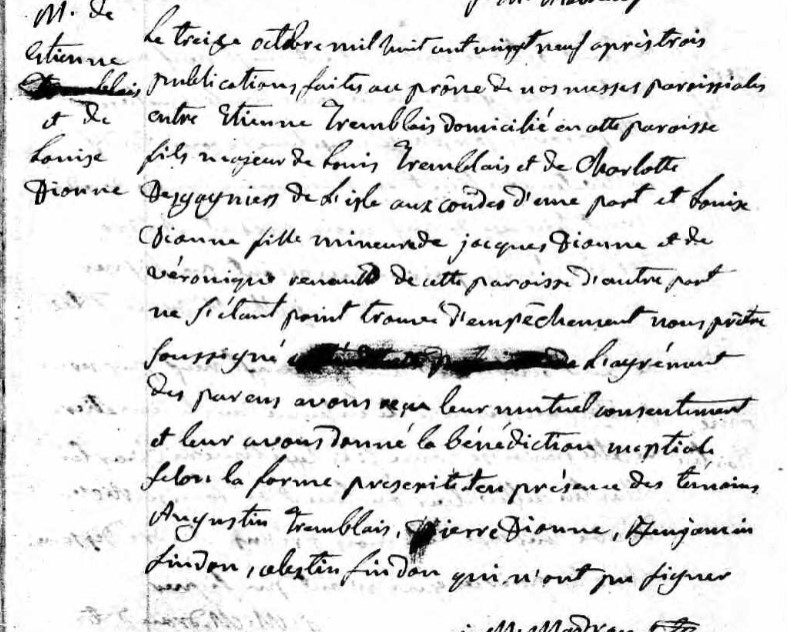 M. de
Etienne
Tremblais
et de
Louise
Dionne
Le treize octobre mil huit cent vingt neuf après trois
publications faites au prône de nos messes paroissiales
entre Etienne Tremblais domicilié en cette paroisse
fils majeur de Louis Tremblais et de Charlotte
Desgagniers de L'isle aux coudes d'une part et Louise
Dionne fille mineure de jacques Dionne et de
véronique renauld de cette paroisse d'autre part
ne s'étant point trouvé d'empêchement nous prêtre
soussigné de L'agrément
des parens avons reçu leur mutuel consentiment
et leur avons donné la bénédiction nuptiale
selon la forme prescrite et en présence des témoins
Augustin Tremblais, Pierre Dionne, Benjamin
findon, celestin findon qui n'ont pu signer